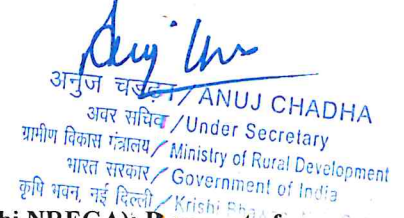 अनुज चड्ढा / ANUJ CHADHA
अवर सचिव / Under Secretary
ग्रामीण विकास मंत्रालय / Ministry of Rural Development
भारत सरकार / Government of India
कृषि भवन, नई दिल्ली / Krishi
NREGA):